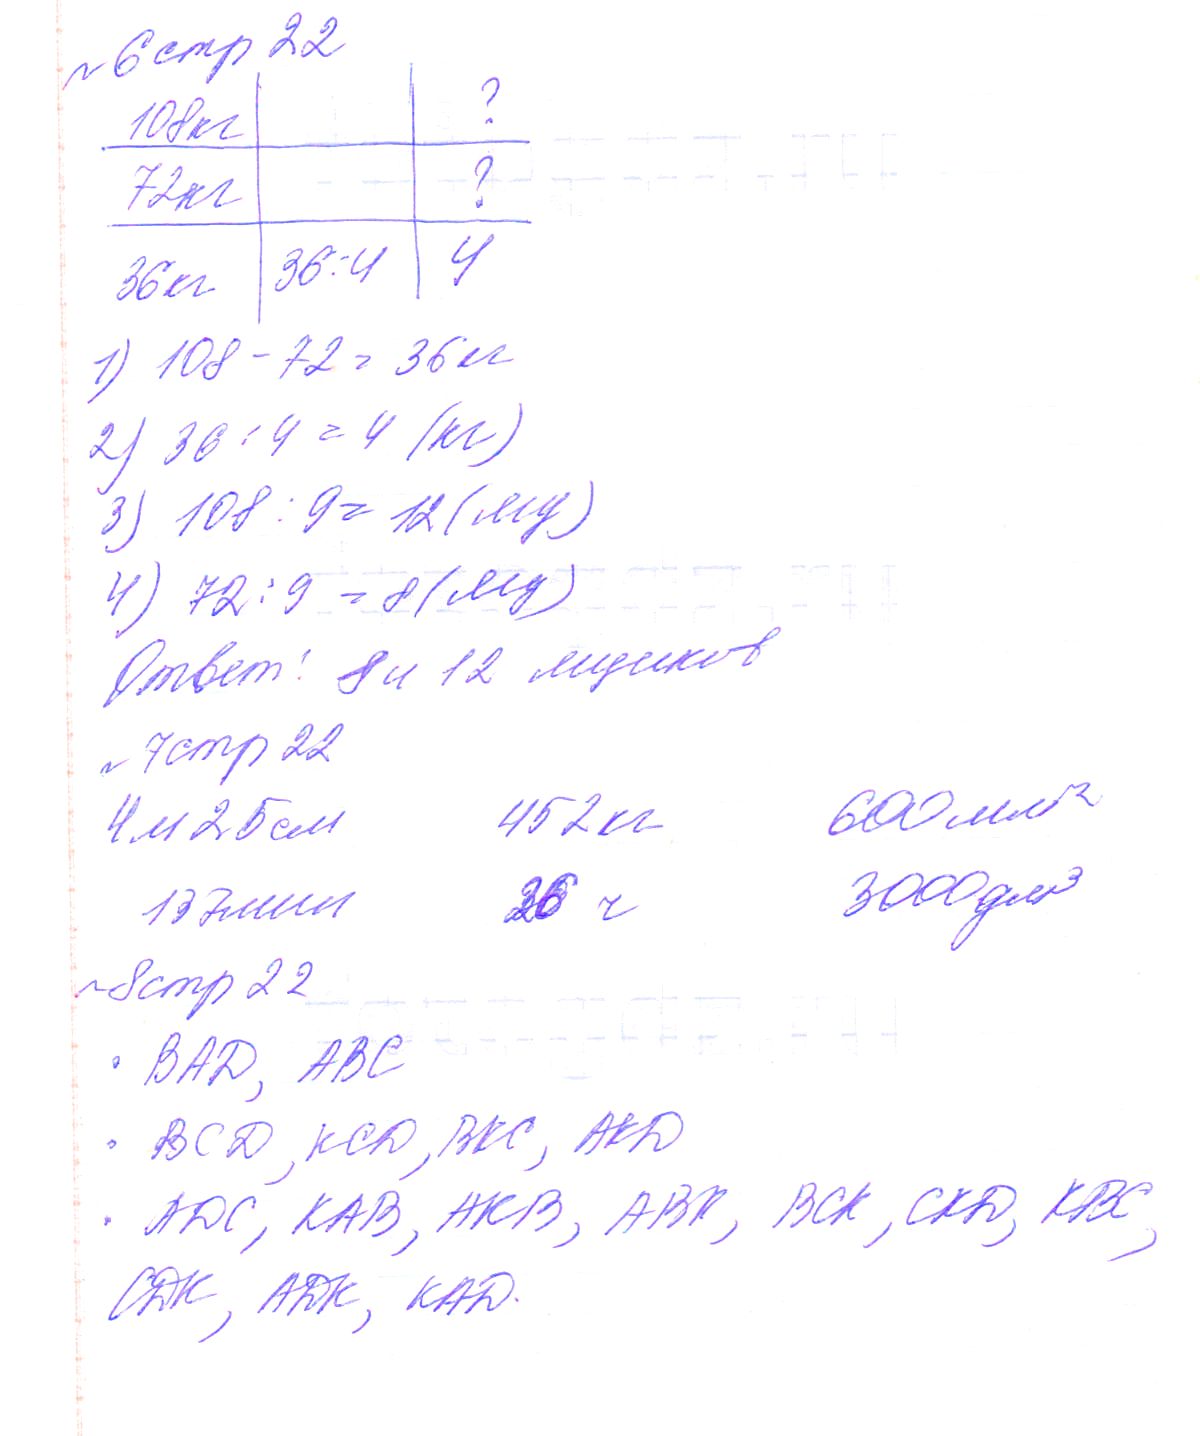 №6 стр 22
108кг ?
72кг ?
36кг 36:4 4
1) 108 - 72 = 36кг
2) 36 : 4 = 4 (кг)
3) 108 : 9 = 12 (ящ)
4) 72 : 9 = 8 (ящ)
Ответ: 8 и 12 ящиков
№7 стр 22
4м 25см 452кг 600мм²
137мин 36 ч 3000дм³
№8 стр 22
· BAD, ABC
· BCD, KCD, BKC, AKD
· ADC, KAB, AKB, ABK, BCK, CKD, KBC,
CDK, ADK, KAD.